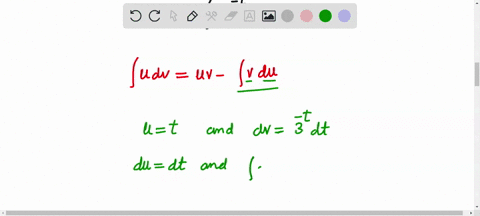 ∫u dv = uv - ∫v du
u = t and dv = 3^{-t} dt
du = dt and ∫